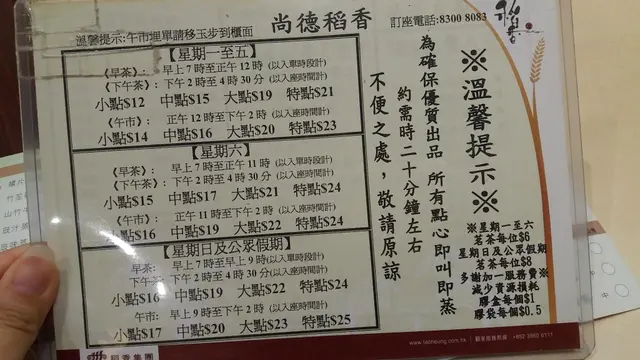 尚德稻香
訂座電話:8300 8083
溫馨提示:午市埋單請移玉步到櫃面
【星期一至五】
《早茶》: 早上7時至正午12時 (以入單時段計)
《下午茶》: 下午2時至4時30分 (以入座時間計)
小點$12 中點$15 大點$19 特點$21
《午市》: 正午12時至下午2時 (以入座時間計)
小點$14 中點$16 大點$20 特點$23
【星期六】
《早茶》: 早上7時至正午11時 (以入單時段計)
《下午茶》: 下午2時至4時30分 (以入座時間計)
小點$15 中點$17 大點$21 特點$24
《午市》: 正午11時至下午2時 (以入座時間計)
小點$16 中點$19 大點$22 特點$24
【星期日及公眾假期】
早茶: 早上7時至早上9時 (以入單時段計)
下午茶: 下午2時至4時30分 (以入座時間計)
小點$16 中點$19 大點$22 特點$24
午市: 早上9時至下午2時 (以入座時間計)
小點$17 中點$20 大點$23 特點$25
※溫馨提示※
為確保優質出品 所有點心即叫即蒸
約需時二十分鐘左右
不便之處，敬請原諒
※星期一至六
茗茶每位$6
星期日及公眾假期
茗茶每位$8
多謝加一服務費※
減少資源損耗
膠盒每個$1
膠袋每個$0.5
稻香集團